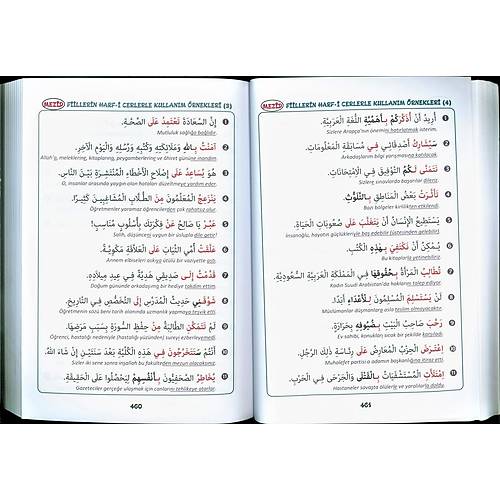 MEZİD FİİLLERİN HARF-İ CERLERLE KULLANIM ÖRNEKLERİ (3)
1 إِنَّ السَّعَادَةَ تَعْتَمِدُ عَلَى الصِّحَّةِ.
Mutluluk sağlığa bağlıdır.
2 آمَنْتُ بِاللهِ وَمَلَائِكَتِهِ وَكُتُبِهِ وَرُسُلِهِ وَالْيَوْمِ الْآخِرِ.
Allah'a, meleklerine, kitaplarına, peygamberlerine ve âhiret gününe inandım
3 هُوَ يُسَاعِدُ عَلَى إِصْلَاحِ الْأَخْطَاءِ الْمُنْتَشِرَةِ بَيْنَ النَّاسِ.
O, insanlar arasında yaygın olan hataları düzeltmeye yardım eder.
4 يَنْزَعِجُ الْمُعَلِّمُونَ مِنَ الطُّلَّابِ الْمُشَاغِبِينَ كَثِيرًا.
Öğretmenler yaramaz öğrencilerden çok rahatsız olur.
5 عَبِّرْ يَا صَالِحُ عَنْ فِكْرَتِكَ بِأُسْلُوبٍ مُنَاسِبٍ!
Salih, düşünceni uygun bir üslupla dile getir!
6 عَلَّقَتْ أُمِّي الثِّيَابَ عَلَى الْعَلَّاقَةِ مَكْوِيَّةً.
Annem elbiseleri askıya ütülü bir vaziyette astı.
7 قَدَّمْتُ إِلَى صَدِيقِي هَدِيَّةً فِي عِيدِ مِيلَادِهِ.
Arkadaşıma doğum gününde bir hediye takdim ettim.
8 شَوَّقَنِي حَدِيثُ الْمُدَرِّسِ إِلَى التَّخَصُّصِ فِي التَّارِيخِ.
Öğretmenin sözü beni tarih alanında uzmanlık yapmaya teşvik etti.
9 لَمْ تَتَمَكَّنِ الطَّالِبَةُ مِنْ حِفْظِ السُّورَةِ بِسَبَبِ مَرَضِهَا.
Öğrenci, hastalığı nedeniyle (hastalığı yüzünden) sureyi ezberleyemedi.
10 أَنْتُمْ سَتَتَخَرَّجُونَ فِي هَذِهِ الْكُلِّيَّةِ بَعْدَ سَنَتَيْنِ إِنْ شَاءَ اللهُ.
Sizler iki sene sonra inşaallah bu fakülteden mezun olacaksınız.
11 يُخَاطِرُ الصَّحَفِيُّونَ بِأَنْفُسِهِمْ لِيَحْصُلُوا عَلَى الْحَقِيقَةِ.
Gazeteciler gerçeğe ulaşmak için canlarını tehlikeye atarlar.
460
MEZİD FİİLLERİN HARF-İ CERLERLE KULLANIM ÖRNEKLERİ (4)
1 أُرِيدُ أَنْ أُذَكِّرَكُمْ بِأَهَمِّيَّةِ اللُّغَةِ الْعَرَبِيَّةِ.
Sizlere Arapça'nın önemini hatırlatmak isterim.
2 سَيُشَارِكُ أَصْدِقَائِي فِي مُسَابَقَةِ الْمَعْلُومَاتِ.
Arkadaşlarım bilgi yarışmasına katılacak.
3 نَتَمَنَّى لَكُمُ التَّوْفِيقَ فِي الِامْتِحَانَاتِ.
Sizlere sınavlarda başarılar dileriz.
4 تَأَثَّرَتْ بَعْضُ الْمَنَاطِقِ بِالتَّلَوُّثِ.
Bazı bölgeler kirlilikten etkilendi.
5 يَسْتَطِيعُ الْإِنْسَانُ أَنْ يَتَغَلَّبَ عَلَى صُعُوبَاتِ الْحَيَاةِ.
İnsanoğlu, hayatın güçlükleriyle baş edebilir (üstesinden gelebilir).
6 يُمْكِنُ أَنْ نَكْتَفِيَ بِهَذِهِ الْكُتُبِ.
Bu kitaplarla yetinebiliriz.
7 تُطَالِبُ الْمَرْأَةُ بِحُقُوقِهَا فِي الْمَمْلَكَةِ الْعَرَبِيَّةِ السُّعُودِيَّةِ.
Kadın Suudi Arabistan'da haklarını talep ediyor.
8 لَنْ يَسْتَسْلِمَ الْمُسْلِمُونَ لِلْأَعْدَاءِ أَبَدًا.
Müslümanlar düşmanlara asla teslim olmayacak.
9 رَحَّبَ صَاحِبُ الْبَيْتِ بِضُيُوفِهِ بِحَرَارَةٍ.
Ev sahibi, konukları sıcak bir şekilde karşıladı.
10 اِعْتَرَضَ الْحِزْبُ الْمُعَارِضُ عَلَى رِئَاسَةِ ذَلِكَ الرَّجُلِ.
Muhalefet partisi o adamın başkanlığına itiraz etti.
11 اِمْتَلَأَتِ الْمُسْتَشْفَيَاتُ بِالْقَتْلَى وَالْجَرْحَى فِي الْحَرْبِ.
Hastaneler savaşta ölülerle ve yaralılarla doldu.
461